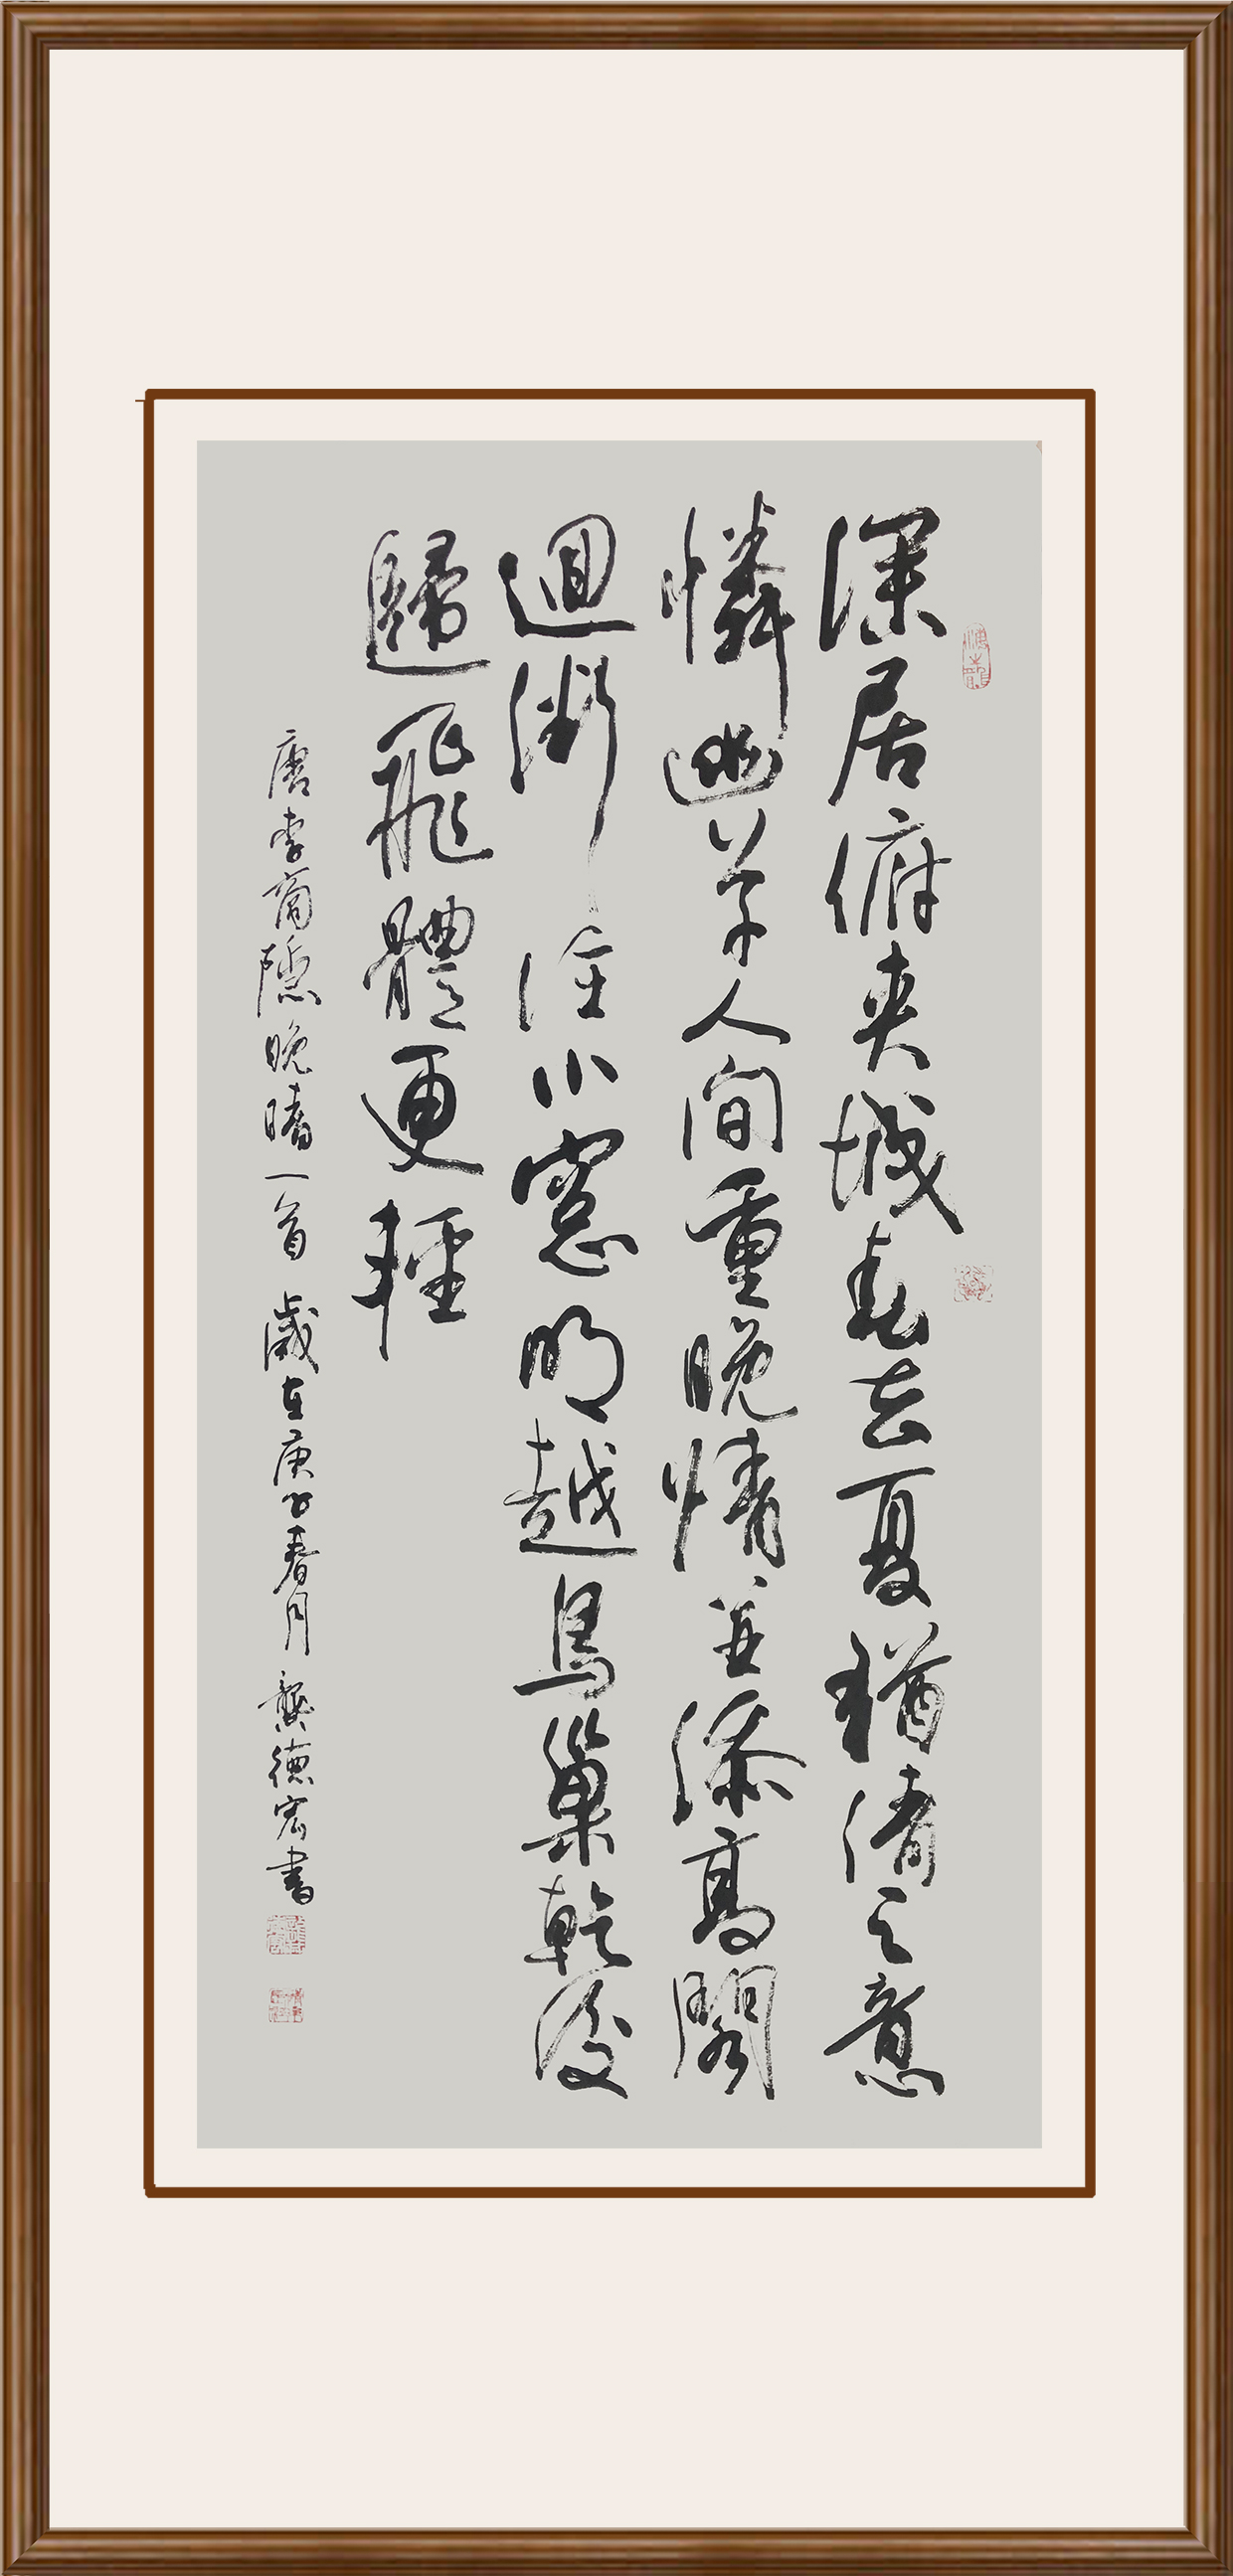 深居俯夾城春去夏猶清天意
憐幽草人間重晚情並添高閣
迴微注小窻明越鳥巢乾後
歸飛體更輕
唐李商隱晚晴一首 歲在庚子春月 龔德宏書